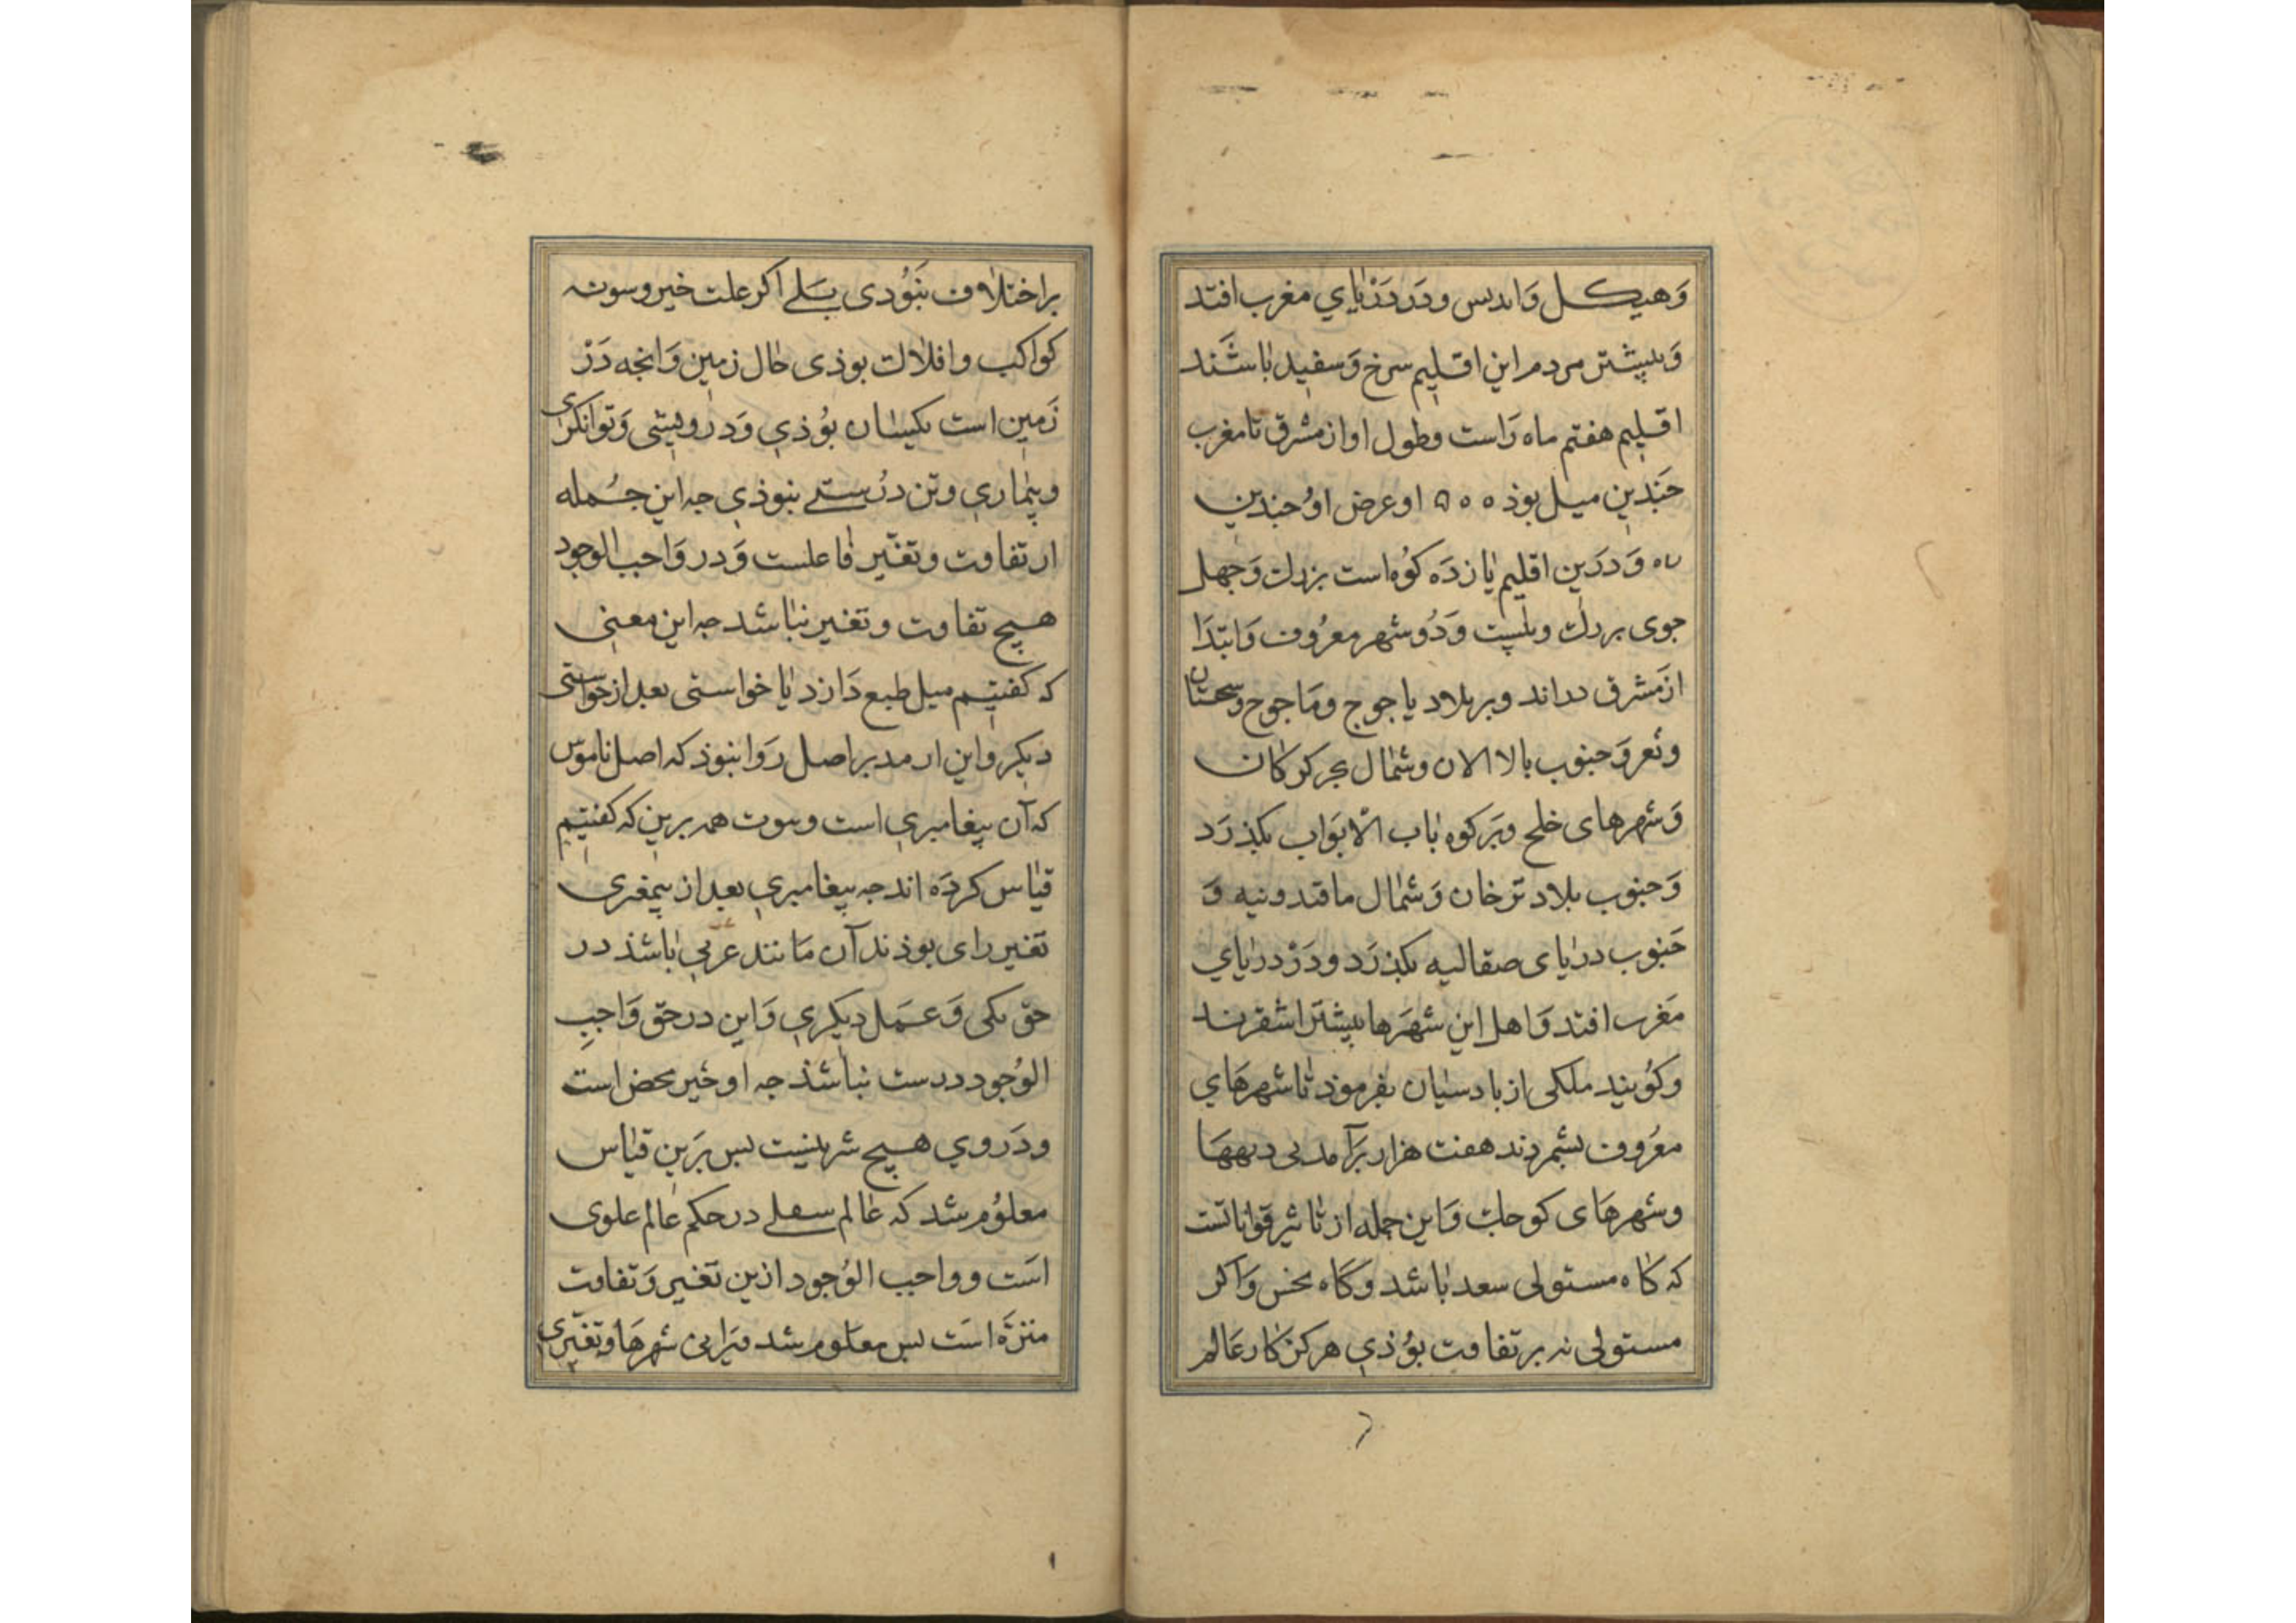 وَهیکل وَاندلس ودَر دَرْیٰایِ مغرب افتد
وَبیشتر مردم این اقلیم سرخ وَسفید بٰاشَند
اقلیم هفتم ماه رَاست وطول او از مشرق تا مغرب
جَندین میل بوذ ٥٥٥ او عرض اوُ جندین
وَدرَین اقلیم یٰازدَه کوُه است بزرك وَجهل
جوی بزرك وبیست وَدُو شهر معرُوف وَابتدَا
ازمشرق دراند وبر بلاد یاجوج ومَاجوج وسجستان
وَجنوب بالا الان وشمٰال بحر کرکٰان
وَشهرهای خلج وبَر کوه بٰاب الابوَاب بکذرَد
وَجنوب بلاد ترخان وَشمٰال ماقدونیه وَ
جَنوب درٰیای صقالیه بکذرَد ودَرْ درٰیایِ
مَغرب افتد وَاهل این شهَرها بیشتَر اشقرند
وکوُیند ملکی از بادسیٰان بفرموذ تٰا شهرهَای
معرُوف بشمردند هفت هزار برَآمد بی دیهها
وشهرهَای کوجك وَاین جمله از تٰاثیر قوٰاناتست
که کٰاه مستولی سعد بٰاشد وکَاه نحس وَاکر
مستولی نه بر تفاوت بوُذی هرکز کٰار عَالم
بر اختلٰاف نبَوُدی بَلی اکر علت خیر وسوت
کواکب وافلاك بوذی حٰال زمین وَانجه دَرْ
زَمین است یکیسٰان بوُذی وَدرویشی وَتوانکری
وبیمٰاری وتن درُستی نبوذی جه این جُمله
از تفاوت وتغیّر فٰاعلست وَدر وَاجب الوجود
هیج تفاوت وتغیر نبٰاشد جه این معنی
که کفتیم میل طبع دَارد یٰا خواستی بعد از خواستی
دیکر واین از مدبر اصل رَوا نبوذ که اصل ناموس
که آن پیغامبری است وسوت همه برین که کفتیم
قیٰاس کردَه اند جه پیغامبری بعد از پیمغبری
تغیر رای بوذ ند آن مَانند عربی بٰاشذ در
حق یکی وَعَمل دیکری وَاین در حق وَاجبِ
الوُجود درست نبٰاشذ جه او خیر محض است
ودَر وی هیج شر نیست بس بَرین قیٰاس
معلوُم شد که عٰالم سفلی در حکم عٰالم علوی
است وواجب الوُجود ازین تغیر وَتفاوت
منزَّه است بس معلوم شد ویَرانی شهرهَا وتغیّری